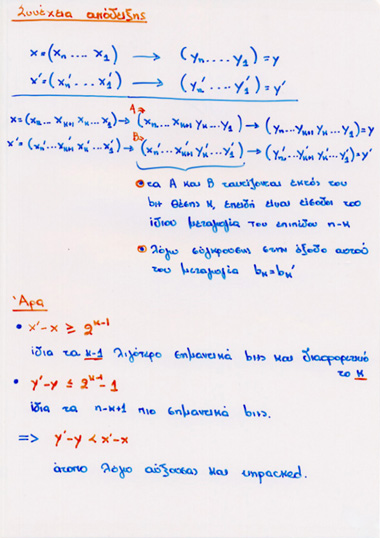 Συνέχεια απόδειξης
x=(xₙ....x₁) → (yₙ....y₁)=y
x'=(xₙ'....x₁') → (yₙ'....y₁')=y'
x=(xₙ...xₖ₊₁ xₖ...x₁) → A (xₙ...xₖ₊₁ yₖ...y₁) → (yₙ...yₖ₊₁ yₖ...y₁)=y
x'=(xₙ'...xₖ₊₁' xₖ'...x₁') → B (xₙ'...xₖ₊₁' yₖ'...y₁') → (yₙ'...yₖ₊₁' yₖ'...y₁')=y'
τα Α και Β ταυτίζονται εκτός του
bit θέσης κ, επειδή είναι είσοδοι του
ίδιου μεταγωγέα του επιπέδου n-κ
λόγω σύγκρουσης στην έξοδο αυτού
του μεταγωγέα bₖ=bₖ'
Άρα
• x'-x ≥ 2ᵏ⁻¹
ίδια τα κ-1 λιγότερο σημαντικά bits και διαφορετικό
το κ
• y'-y ≤ 2ᵏ⁻¹-1
ίδια τα n-κ+1 πιο σημαντικά bits.
=> y'-y < x'-x
άτοπο λόγω αύξουσας και unpacked.